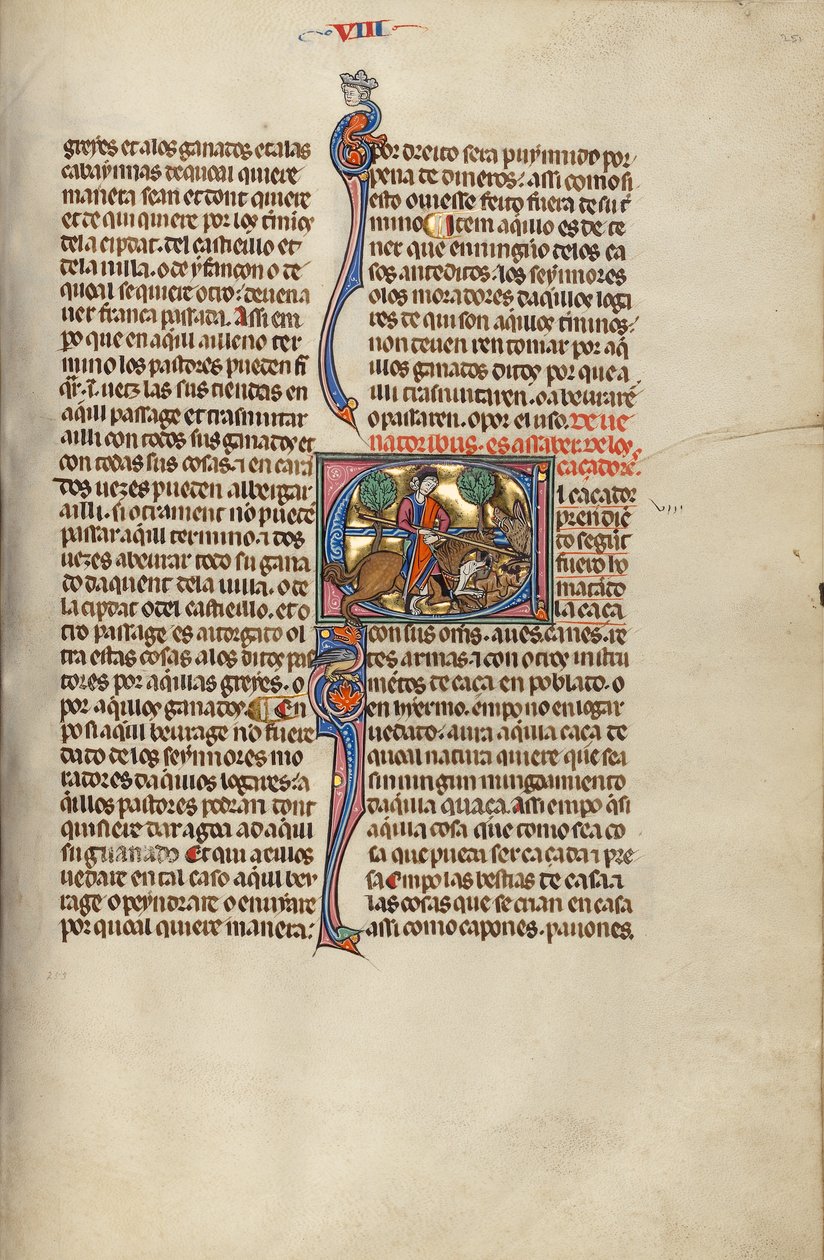 VIII
251
greyes et alos ganados et alas
cabaynnas de qual quiere
manera sean et dont quiere
et de qui quiere por los t̃minos
dela cipdat. del castieillo et
dela uilla. o de yfançon o de
qual se quiere otro: deuen a
uer franca passada. Assi em
po que en aq̃ill ailleno ter
mino los pastores pueden fi
una uetz las sus tiendas en
aq̃ill passage et trasnuitar
ailli con todos sus ganados et
con todas sus cosas. ⁊ en cada
dos uezes pueden albergar
ailli. si otrament no puede
passar aq̃ill termino. ⁊ dos
uezes abeurar todo su gana
do daquent dela uilla. o de
la cipdat o del castieillo. et o
tro passage es autorgado ol
tra estas cosas alos ditos pas
tores por aq̃illas greyes. o
por aq̃illos ganados. En
po si aq̃ill beurage no fuere
dado delos seynnores mo
radores daq̃illos logares: a
q̃illos pastores podran dont
quisiere dar agoa ad aq̃ill
su guanado Et qui a eillos
uedare en tal caso aq̃ill beu
rage o peyndrare o enuyare
por qual quiere manera:
por dreito sera puynnido por
pena de dineros: assi como si
esto ouiesse feito fuera de su t̃
mino Item aq̃illo es de te
ner que en ningũo delos ca
sos anteditos: los seynnores
o los moradores daq̃illos loga
res de qui son aq̃illos t̃minos:
non deuen ren tomar por aq̃
illos ganados ditos por que a
illi trasnuitaren. o abeuraren
o passaren. o por el uso. De ue
natoribus. es assaber. de los
caçadores.
El caçador VIII
prendiẽ
do segũt
fuero bo
matãdo
la caça
con sus oms. aues. canes. re
tes armas. ⁊ con otros instru
mẽtos de caça en poblado. o
en yermo. empo no en logar
uedado. aura aquila caça de
qual natura quiere que sea
sin ningun minguamiento
daq̃uila quaça. Assi empo q̃ si
aq̃uilla cosa que como sea co
sa que pueda ser caçada ⁊ pre
sa Empo las bestias de casa. ⁊
las cosas que se crian en casa
assi como capones. pauones.
253